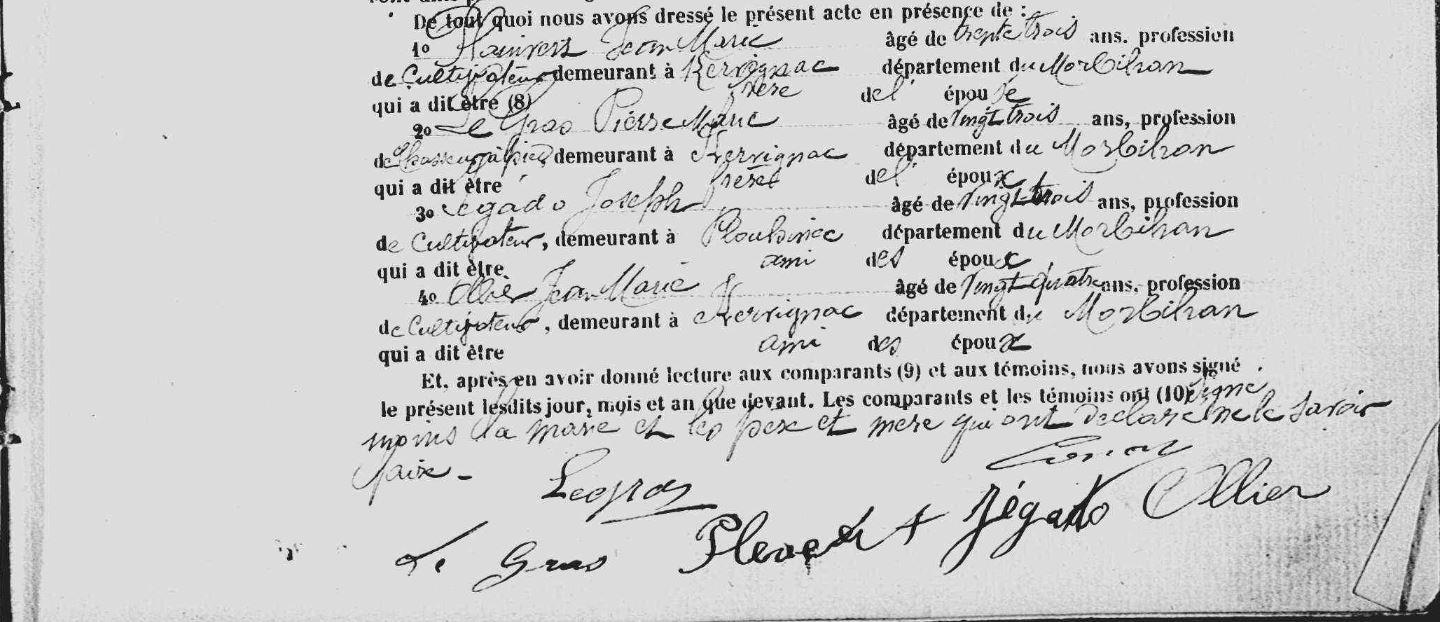 De tout quoi nous avons dressé le présent acte en présence de :
1o Jean Marie âgé de trente trois ans, profession
de Cultivateur demeurant à Kervignac département du Morbihan
qui a dit être (8) frère de l' épouse
2o Le Gras Pierre Marie âgé de vingt trois ans, profession
de demeurant à Kervignac département du Morbihan
qui a dit être frère de l' époux
3o Jégado Joseph âgé de vingt trois ans, profession
de Cultivateur, demeurant à Plouhinec département du Morbihan
qui a dit être ami des époux
4o Ollier Jean Marie âgé de vingt quatre ans, profession
de Cultivateur, demeurant à Kervignac département du Morbihan
qui a dit être ami des époux
Et, après en avoir donné lecture aux comparants (9) et aux témoins, nous avons signé
le présent lesdits jour, mois et an que devant. Les comparants et les témoins ont (10) signé
moins la mariée et les père et mère qui ont déclaré ne le savoir
faire -
Legras
Le Gras Jégado Ollier